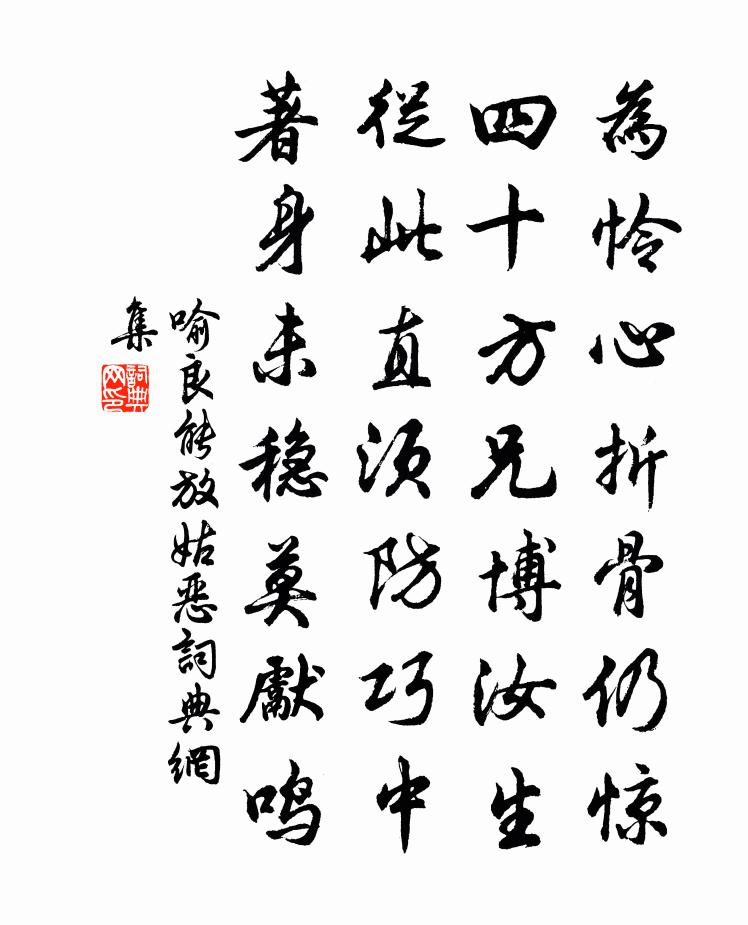 為怜心折骨仍惊
四十方兄博汝生
從此直須防巧中
著身未稳莫獻鸣
喻良能放姑恶詞典網
集
詞典
网印